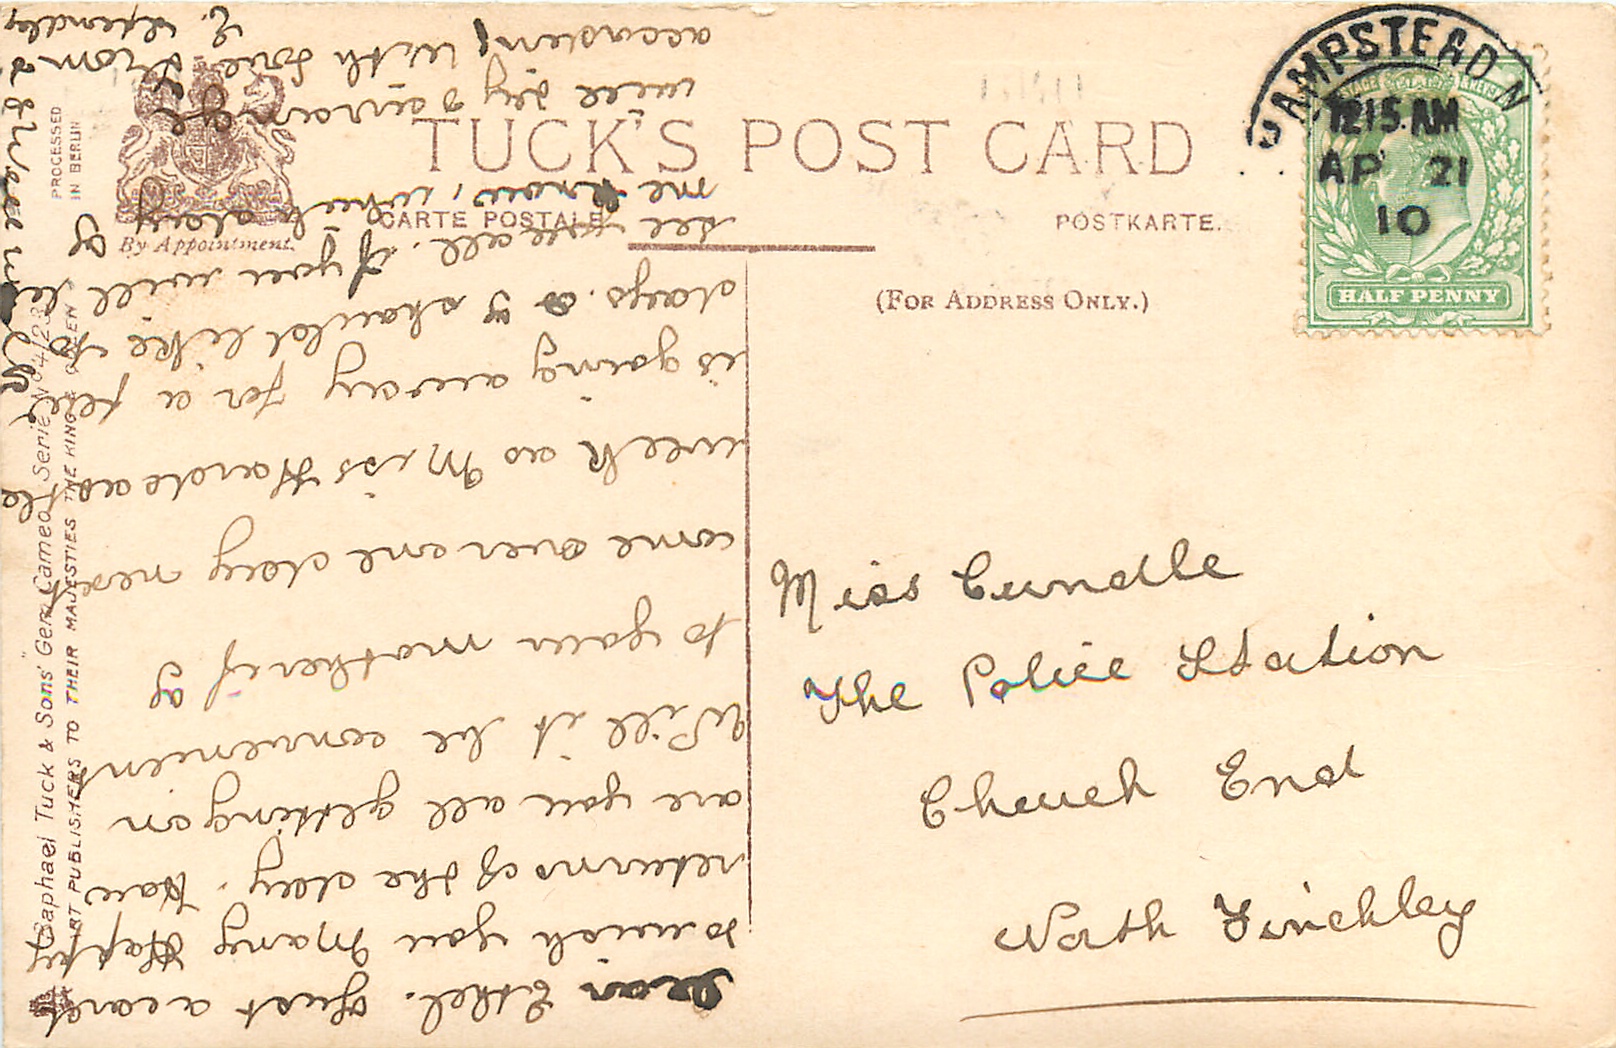 TUCK'S POST CARD
CARTE POSTALE
POSTKARTE.
(FOR ADDRESS ONLY.)
By Appointment.
PROCESSED
IN BERLIN
Raphael Tuck & Sons' "Gem Cameo" Serie No 4123
ART PUBLISHERS TO THEIR MAJESTIES THE KING & QUEEN
HAMPSTEAD N
12 15 AM
AP 21
10
HALF PENNY
Miss Cundle
The Police Station
Church End
North Finchley
Dear Ethel. Just a card
to wish you Many Happy
returns of the day. How
are you all getting on
Will it be convenient
to your mother if I
come over one day next
week as Miss Hardcastle
is going away for a few
days. & I should like to
see you all. If you will let
me know, which day I
will try & arrange
accordingly with love from